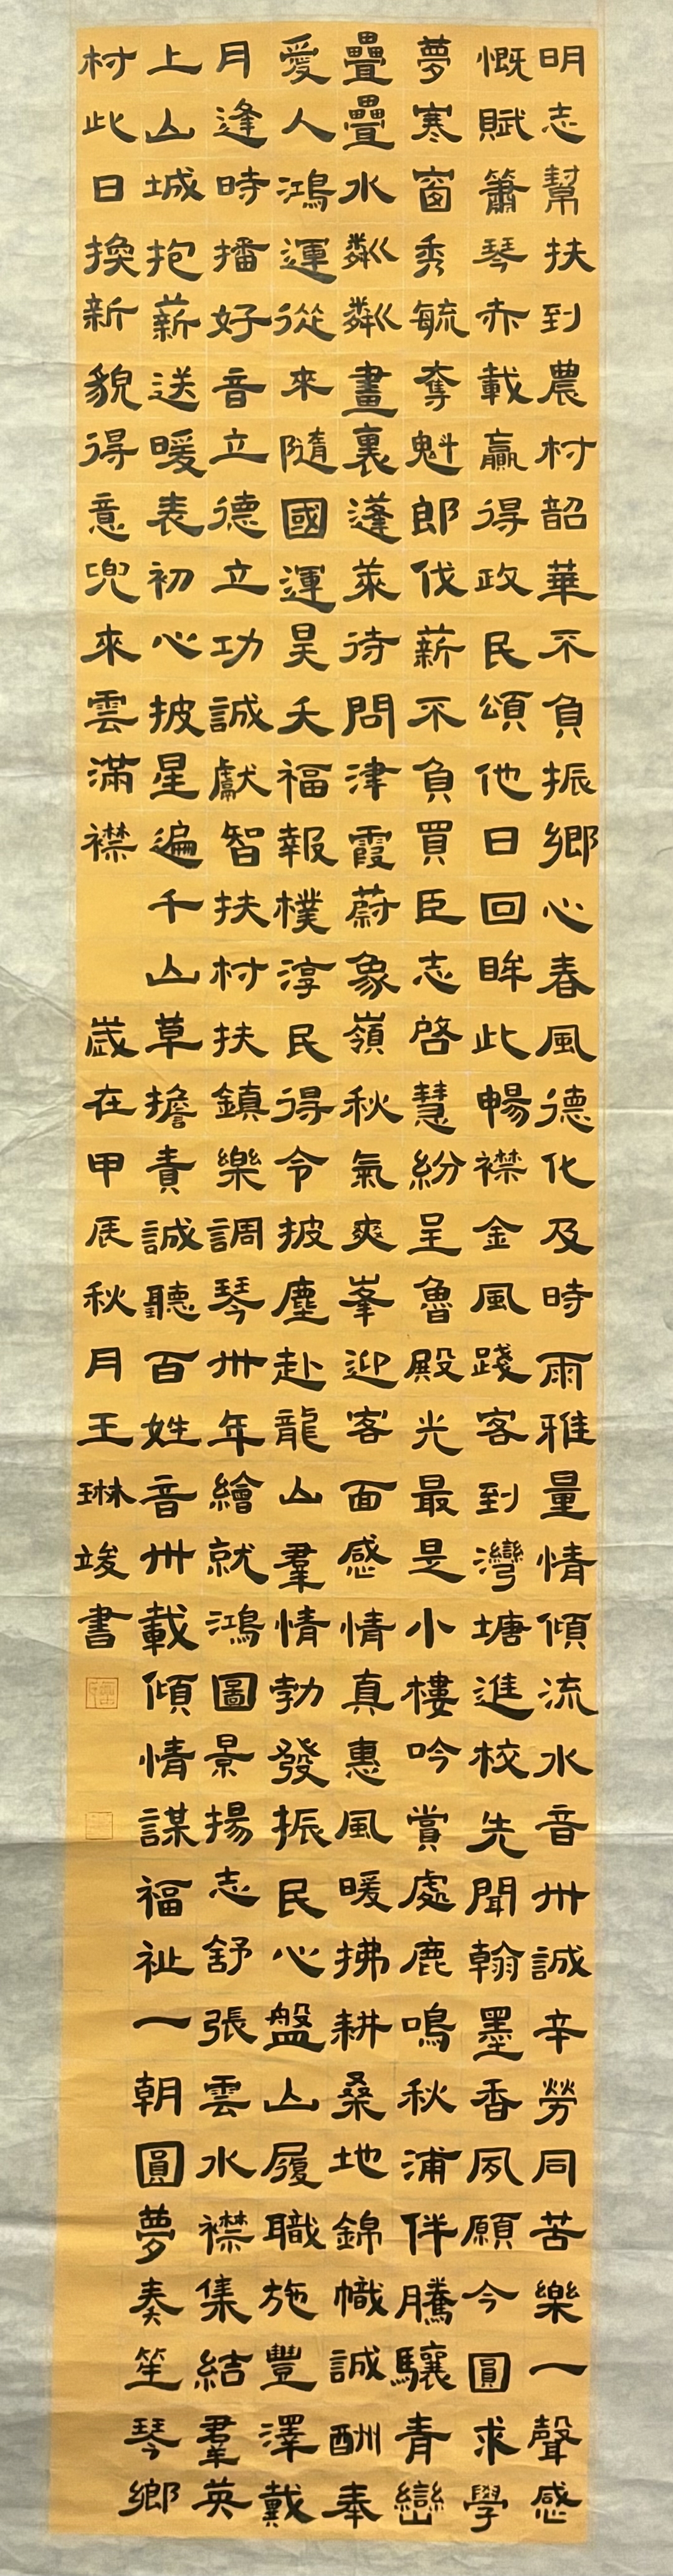 明志幫扶到農村韶華不負振鄉心春風德化及時雨雅量情傾流水音卅誠辛勞同苦樂一聲感
慨賦簫琴赤載贏得政民頌他日回眸此暢襟金風踐客到灣塘進校先聞翰墨香夙願今圓求學
夢寒窗秀毓奪魁郎伐薪不負買臣志啓慧紛呈魯殿光最是小樓吟賞處鹿鳴秋浦伴騰驤青巒
疊疊水粼粼畫裏蓬萊待問津霞蔚象嶺秋氣爽峯迎客面感情真惠風暖拂耕桑地錦幟誠酬奉
愛人鴻運從來隨國運昊天福報樸淳民得令披塵赴龍山羣情勃發振民心盤山履職施豐澤戴
月逢時播好音立德立功誠獻智扶村扶鎮樂調琴卅年繪就鴻圖景揚志舒張雲水襟集結羣英
上山城抱薪送暖表初心披星遍千山草擔責誠聽百姓音卅載傾情謀福祉一朝圓夢奏笙琴鄉
村此日換新貌得意兜來雲滿襟 歲在甲辰秋月王琳竣書